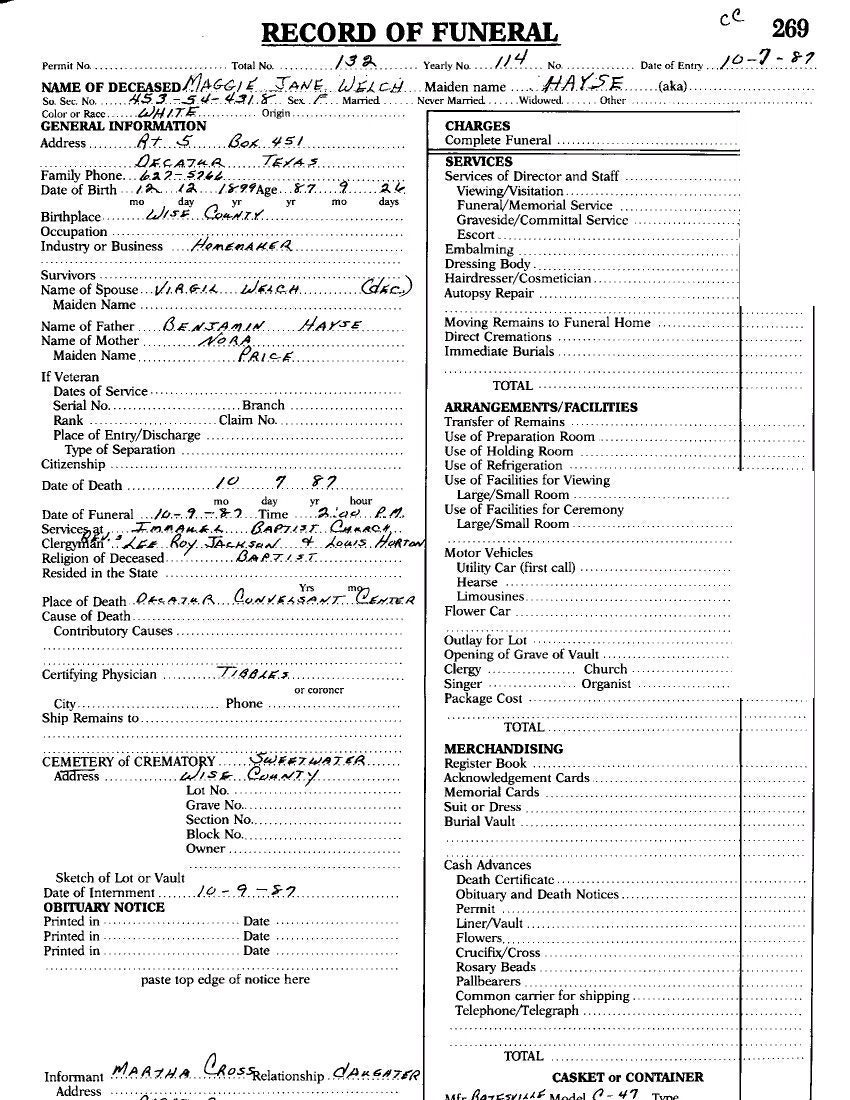 CC 269
RECORD OF FUNERAL
Permit No. Total No. 132 Yearly No. 114 No. Date of Entry 10-7-87
NAME OF DECEASED MAGGIE JANE WELCH Maiden name HAYSE (aka)
So. Sec. No. 453-54-4318 Sex F Married Never Married Widowed Other
Color or Race WHITE Origin
GENERAL INFORMATION
Address Rt 5 Box 451
DECATUR TEXAS
Family Phone 627-5266
Date of Birth 12 12 1899 Age 87 9 26
mo day yr yr mo days
Birthplace WISE COUNTY
Occupation
Industry or Business HOMEMAKER
Survivors
Name of Spouse VIRGIL WELCH (dec.)
Maiden Name
Name of Father BENJAMIN HAYSE
Name of Mother NORA
Maiden Name PRICE
If Veteran
Dates of Service
Serial No. Branch
Rank Claim No.
Place of Entry/Discharge
Type of Separation
Citizenship
Date of Death 10 7 87
mo day yr hour
Date of Funeral 10-9-87 Time 2:00 P.M.
Services at IMMANUEL BAPTIST CHURCH
Clergyman REV.'S LEE ROY JACKSON & LOUIS HORTON
Religion of Deceased BAPTIST
Resided in the State
Yrs mo
Place of Death DECATUR CONVELSANT CENTER
Cause of Death
Contributory Causes
Certifying Physician TIBBLES
or coroner
City Phone
Ship Remains to
CEMETERY of CREMATORY SWEETWATER
Address WISE COUNTY
Lot No.
Grave No.
Section No.
Block No.
Owner
Sketch of Lot or Vault
Date of Internment 10-9-87
OBITUARY NOTICE
Printed in Date
Printed in Date
Printed in Date
paste top edge of notice here
Informant MARTHA CROSS Relationship DAUGHTER
Address
CHARGES
Complete Funeral
SERVICES
Services of Director and Staff
Viewing/Visitation
Funeral/Memorial Service
Graveside/Committal Service
Escort
Embalming
Dressing Body
Hairdresser/Cosmetician
Autopsy Repair
Moving Remains to Funeral Home
Direct Cremations
Immediate Burials
TOTAL
ARRANGEMENTS/FACILITIES
Transfer of Remains
Use of Preparation Room
Use of Holding Room
Use of Refrigeration
Use of Facilities for Viewing
Large/Small Room
Use of Facilities for Ceremony
Large/Small Room
Motor Vehicles
Utility Car (first call)
Hearse
Limousines
Flower Car
Outlay for Lot
Opening of Grave of Vault
Clergy Church
Singer Organist
Package Cost
TOTAL
MERCHANDISING
Register Book
Acknowledgement Cards
Memorial Cards
Suit or Dress
Burial Vault
Cash Advances
Death Certificate
Obituary and Death Notices
Permit
Liner/Vault
Flowers
Crucifix/Cross
Rosary Beads
Pallbearers
Common carrier for shipping
Telephone/Telegraph
TOTAL
CASKET or CONTAINER
Mfr BATESVILLE Model C-47 Type